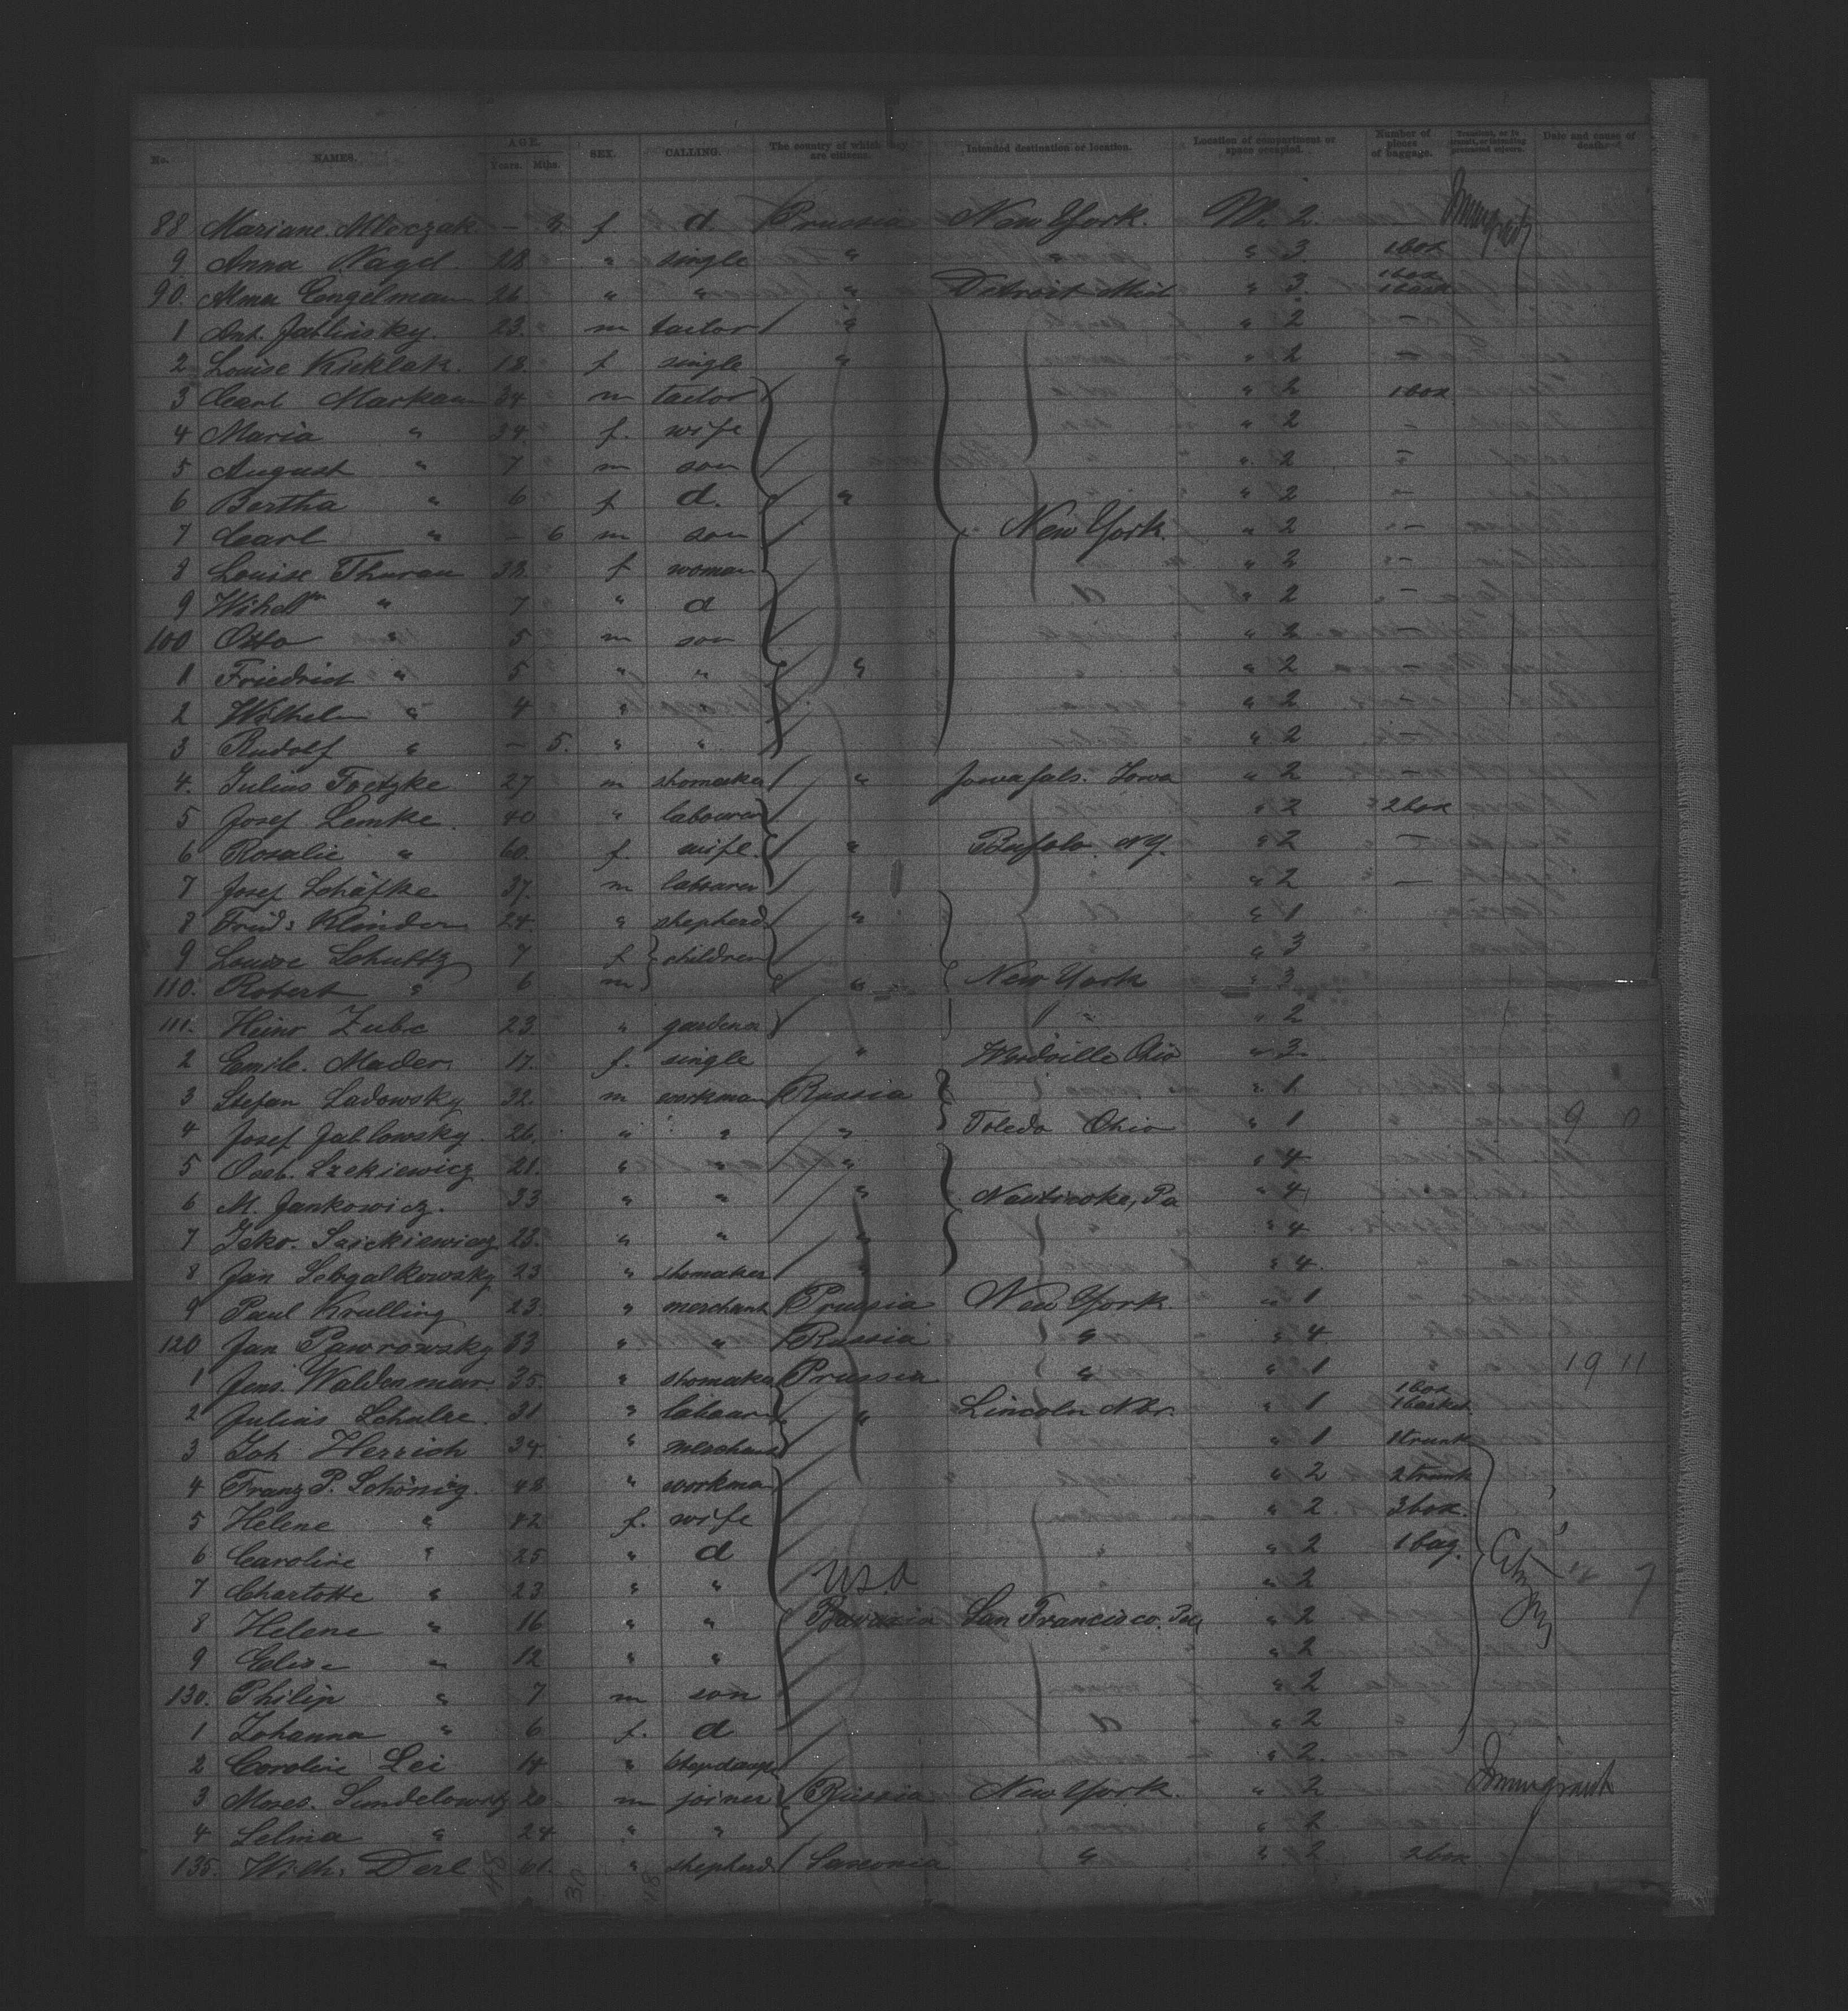 No. NAMES. AGE. Years. Mths. SEX. CALLING. The country of which they are citizens. Intended destination or location. Location of compartment or space occupied. Number of pieces of baggage. Transient, or in transit, or intending protracted sojourn. Date and cause of death.
88 Mariane Mleczak – 3 f d. Prussia New York. W. 2. – Immigrant
9 Anna Nagel 28 " single " " " 3 1 box
90. Alma Engelmann 26 " " " Detroit Mich " 3. 1 box
1 Ant. Jablinsky. 23. m tailor " " 2 –
2 Louise Kieklak. 18. f single " " 2 –
3 Carl Markau 34 m tailor " 2 1 box
4 Maria " 34 f. wife " 2 –
5 August " 7 m son " 2 –
6 Bertha " 6 f d. " " 2 –
7 Carl " – 6 m son New York. " 2 –
8 Louise Thurau 32 f woman " 2 –
9 " 7 " d " 2 –
100 Otto " 5 m son " 2 –
1 Friedrich " 5 " " " " 2 –
2 Wilhelm " 4 " " 2 –
3 Rudolf " – 5. " " " 2
4. Julius Foetzke 27 m shomaker " Jowafals. Iowa " 2 –
5 Josef Lemke. 40 " labourer " 2 2 box
6 Rosalie " 60. f. wife. " Bufalo. NY. " 2 –
7 Josef Schäfke 37. m labourer " 2 –
8 Frid: Klinder 24. " shepherd " " 1
9 Louise Schultz 7 f children " 3
110. Robert " 6 m " New York " 3
111. Heinr Zube 23 " gardener " " 2
2 Emile. Mader. 17. f. single " Ohio " 3
3 Stefan Ladowsky 32. m workman Russia " 1
4 Josef Jablowsky. 26. " " " Toledo Ohio " 1
5 21. " " " " 4
6 M. Jankowicz. 23 " " " Nantiroke, Pa " 4
7 23. " " " " 4
8 Jan 23 " shomaker " " 4.
9 Paul Krulling 23. " merchant Prussia New York " 1
120 Jan Pawrowsky 33 " " Russia " " 4
1 Jens. Waldenmar. 35. " shomaker Prussia " " 1
2 Julius Schulze. 31 " labourer " Lincoln Nbr. " 1 1 box 1 basket.
3 Joh Herrich 34. " merchant " 1 1 trunk
4 Franz P. Schönig. 48 " workman " 2 2 trunk
5 Helene " 42 f. wife " 2 3 box.
6 Caroline " 25 " d " 2 1 bag.
7 Charlotte " 23 " " U.S.A " 2
8 Helene " 16 " " Bavaria San Francisco. " 2
9 Elise " 12 " " " 2
130. Philip " 7 m son " 2
1 Johanna " 6 f. d " 2
2 Caroline Lei 14 " " 2.
3 Moses. Sundelowitz 20 m joiner Russia New York. " 2 Immigrant
4 Selma " 24 " " " 2
135. Wilh: Derl 61. " shepherd Saxonia " " 2 2 box